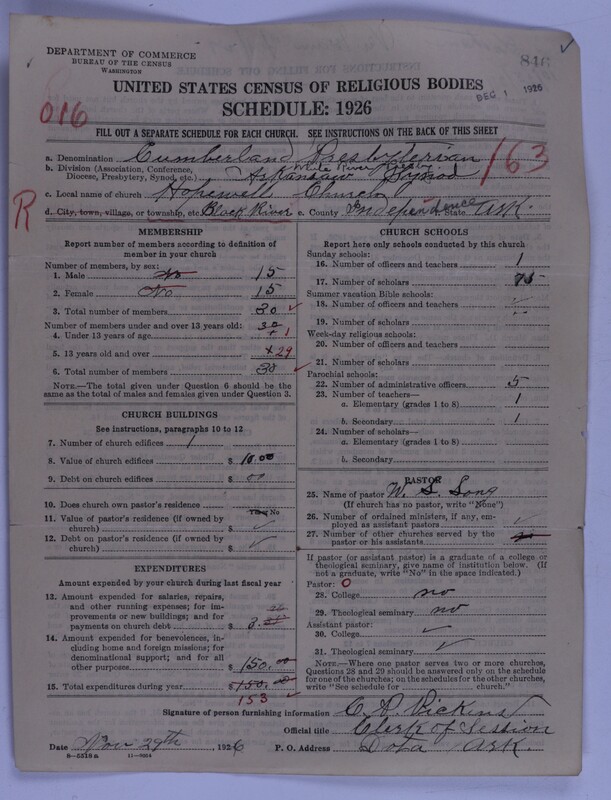 DEPARTMENT OF COMMERCE
BUREAU OF THE CENSUS
WASHINGTON
846
UNITED STATES CENSUS OF RELIGIOUS BODIES
DEC 1 1926
016
SCHEDULE: 1926
FILL OUT A SEPARATE SCHEDULE FOR EACH CHURCH. SEE INSTRUCTIONS ON THE BACK OF THIS SHEET
a. Denomination Cumberland Presbyterian
163
b. Division (Association, Conference, Diocese, Presbytery, Synod, etc.) White River Presby Arkansas Synod
c. Local name of church Hopewell Church
R
d. City, town, village, or township, etc. Black River e. County Independence State Ark.
MEMBERSHIP
Report number of members according to definition of
member in your church
Number of members, by sex:
1. Male No 15
2. Female No 15
3. Total number of members 30
Number of members under and over 13 years old: 30
4. Under 13 years of age + 1
5. 13 years old and over + 29
6. Total number of members 30
NOTE.—The total given under Question 6 should be the
same as the total of males and females given under Question 3.
CHURCH BUILDINGS
See instructions, paragraphs 10 to 12
7. Number of church edifices 1
8. Value of church edifices $ 10.00
9. Debt on church edifices $ 00
10. Does church own pastor's residence Yes No
11. Value of pastor's residence (if owned by
church) $
12. Debt on pastor's residence (if owned by
church) $
EXPENDITURES
Amount expended by your church during last fiscal year
13. Amount expended for salaries, repairs,
and other running expenses; for im-
provements or new buildings; and for
payments on church debt $ 3.
14. Amount expended for benevolences, in-
cluding home and foreign missions; for
denominational support; and for all
other purposes $ 150.00
15. Total expenditures during year $ 150.00
153
CHURCH SCHOOLS
Report here only schools conducted by this church
Sunday schools:
16. Number of officers and teachers 1
17. Number of scholars 75
Summer vacation Bible schools:
18. Number of officers and teachers
19. Number of scholars
Week-day religious schools:
20. Number of officers and teachers
21. Number of scholars
Parochial schools:
22. Number of administrative officers 5
23. Number of teachers—
a. Elementary (grades 1 to 8) 1
b. Secondary 1
24. Number of scholars—
a. Elementary (grades 1 to 8)
b. Secondary
PASTOR
25. Name of pastor W. S. Long
(If church has no pastor, write "None")
26. Number of ordained ministers, if any, em-
ployed as assistant pastors
27. Number of other churches served by the
pastor or his assistants
If pastor (or assistant pastor) is a graduate of a college or
theological seminary, give name of institution below. (If
not a graduate, write "No" in the space indicated.)
Pastor: O
28. College no
29. Theological seminary no
Assistant pastor:
30. College
31. Theological seminary
NOTE.—Where one pastor serves two or more churches,
Questions 28 and 29 should be answered only on the schedule
for one of the churches; on the schedules for the other churches,
write "See schedule for church."
Signature of person furnishing information C. P. Pickens
Official title Clerk of Session
Date Nov 29th, 1926 P. O. Address Dota Ark.